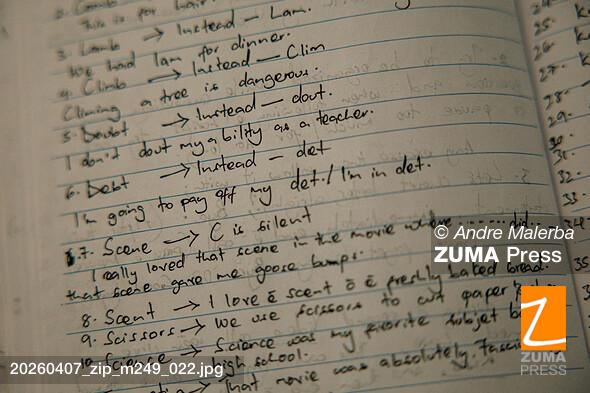 2. Comb
This is for hair
3. Lamb → Instead – Lam.
We had lam for dinner.
4. Climb → Instead – Clim
Climing a tree is dangerous.
5. Doubt → Instead – dout.
I don't dout my ability as a teacher.
6. Debt → Instead – det
I'm going to pay off my det./ I'm in det.
7. Scene → C is silent
I really loved that scene in the movie where ...... did..
that scene gave me goose bumps.
8. Scent → I love ē scent ō ē freshly baked bread.
9. Scissors → We use scissors to cut paper
10. Science → Science was my favorite subjet
high school.
→ That movie was absolutely
25.
26.
27.
28.
29.
30.
31.
32.
33.
34.
35
© Andre Malerba
ZUMA Press
Z
ZUMA
PRESS
20260407_zip_m249_022.jpg